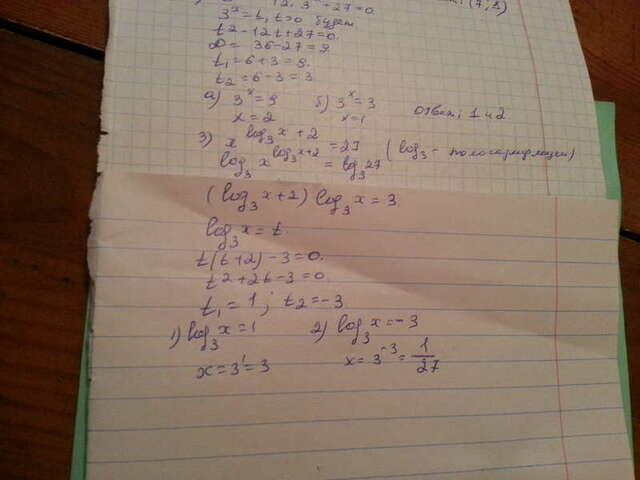 12·3ˣ+27=0 (7;1)
3ˣ=t, t>0 будем
t²-12t+27=0.
D=36-27=9.
t₁=6+3=9.
t₂=6-3=3.
а) 3ˣ=9 б) 3ˣ=3
x=2 x=1 ответ: 1 и 2.
3) x^(log₃x+2)=27 (log₃ - пологарифмации)
log₃ x^(log₃x+2) = log₃ 27
(log₃ x+2) log₃ x=3
log₃ x=t.
t(t+2)-3=0.
t²+2t-3=0.
t₁=1; t₂=-3
1) log₃ x=1 2) log₃ x=-3
x=3¹=3 x=3⁻³=1/27